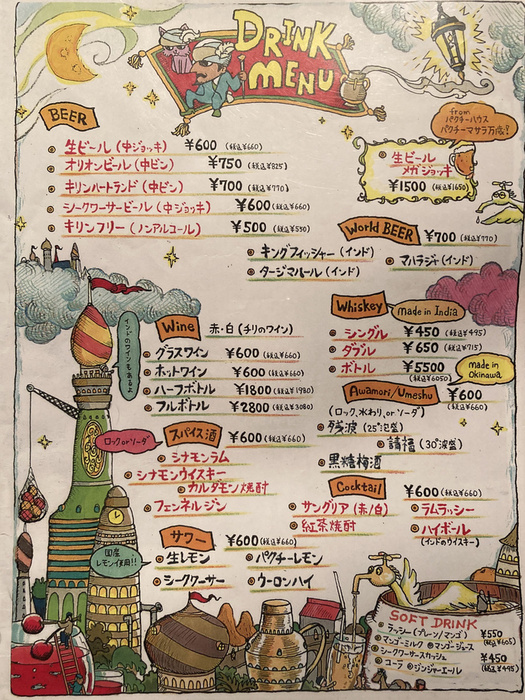 DRINK
MENU
BEER
生ビール (中ジョッキ) ¥600 (税込¥660)
オリオンビール (中ビン) ¥750 (税込¥825)
キリンハートランド (中ビン) ¥700 (税込¥770)
シークワーサービール (中ジョッキ) ¥600 (税込¥660)
キリンフリー (ノンアルコール) ¥500 (税込¥550)
from
パクチーハウス
パクチーマサラ万歳!
生ビール
メガジョッキ
¥1500 (税込¥1650)
World BEER ¥700 (税込¥770)
キングフィッシャー (インド)
マハラジャ (インド)
タージマハール (インド)
インドのワインもあるよ
Wine 赤・白 (チリのワイン)
グラスワイン ¥600 (税込¥660)
ホットワイン ¥600 (税込¥660)
ハーフボトル ¥1800 (税込¥1980)
フルボトル ¥2800 (税込¥3080)
Whiskey made in India
シングル ¥450 (税込¥495)
ダブル ¥650 (税込¥715)
ボトル ¥5500
(税込¥6050)
made in
Okinawa
Awamori/Umeshu ¥600
(税込¥660)
(ロック、水わり、or ソーダ)
残波 (25°泡盛)
請福 (30°泡盛)
黒糖梅酒
ロック or ソーダ
スパイス酒 ¥600 (税込¥660)
シナモンラム
シナモンウイスキー
カルダモン焼酎
フェンネルジン
Cocktail ¥600 (税込¥660)
サングリア (赤/白)
ラムラッシー
紅茶焼酎
ハイボール
(インドのウイスキー)
国産
レモン使用!!
サワー ¥600 (税込¥660)
生レモン
パクチーレモン
シークワーサー
ウーロンハイ
SOFT DRINK
ラッシー (プレーン/マンゴ) ¥550
マンゴミルク マンゴージュース (税込¥605)
シークワーサースカッシュ ¥450
コーラ ジンジャーエール (税込¥495)